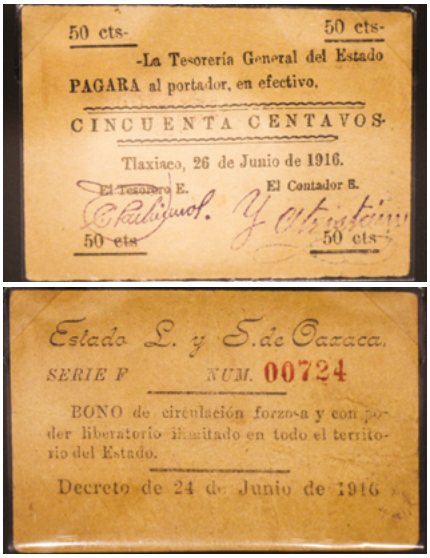 50 cts- 50 cts-
-La Tesorería General del Estado
PAGARA al portador, en efectivo,
CINCUENTA CENTAVOS-
Tlaxiaco, 26 de Junio de 1916.
El Tesorero E. El Contador E.
50 cts 50 cts
Estado L. y S. de Oaxaca.
SERIE F NUM. 00724
BONO de circulación forzosa y con po-
der liberatorio ilimitado en todo el territo-
rio del Estado.
Decreto de 24 de Junio de 1916